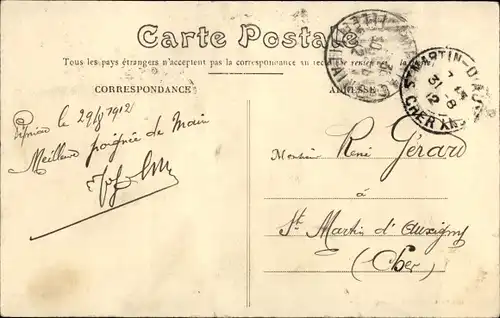 Carte Postale
Tous les pays étrangers n'acceptent pas la correspondance au recto
CORRESPONDANCE
le 29/8 1912
Meilleure poignée de Main
ADRESSE
Monsieur René Gérard
à
St Martin d'Auxigny
(Cher)
St MARTIN-D'A
31 8
12
CHER